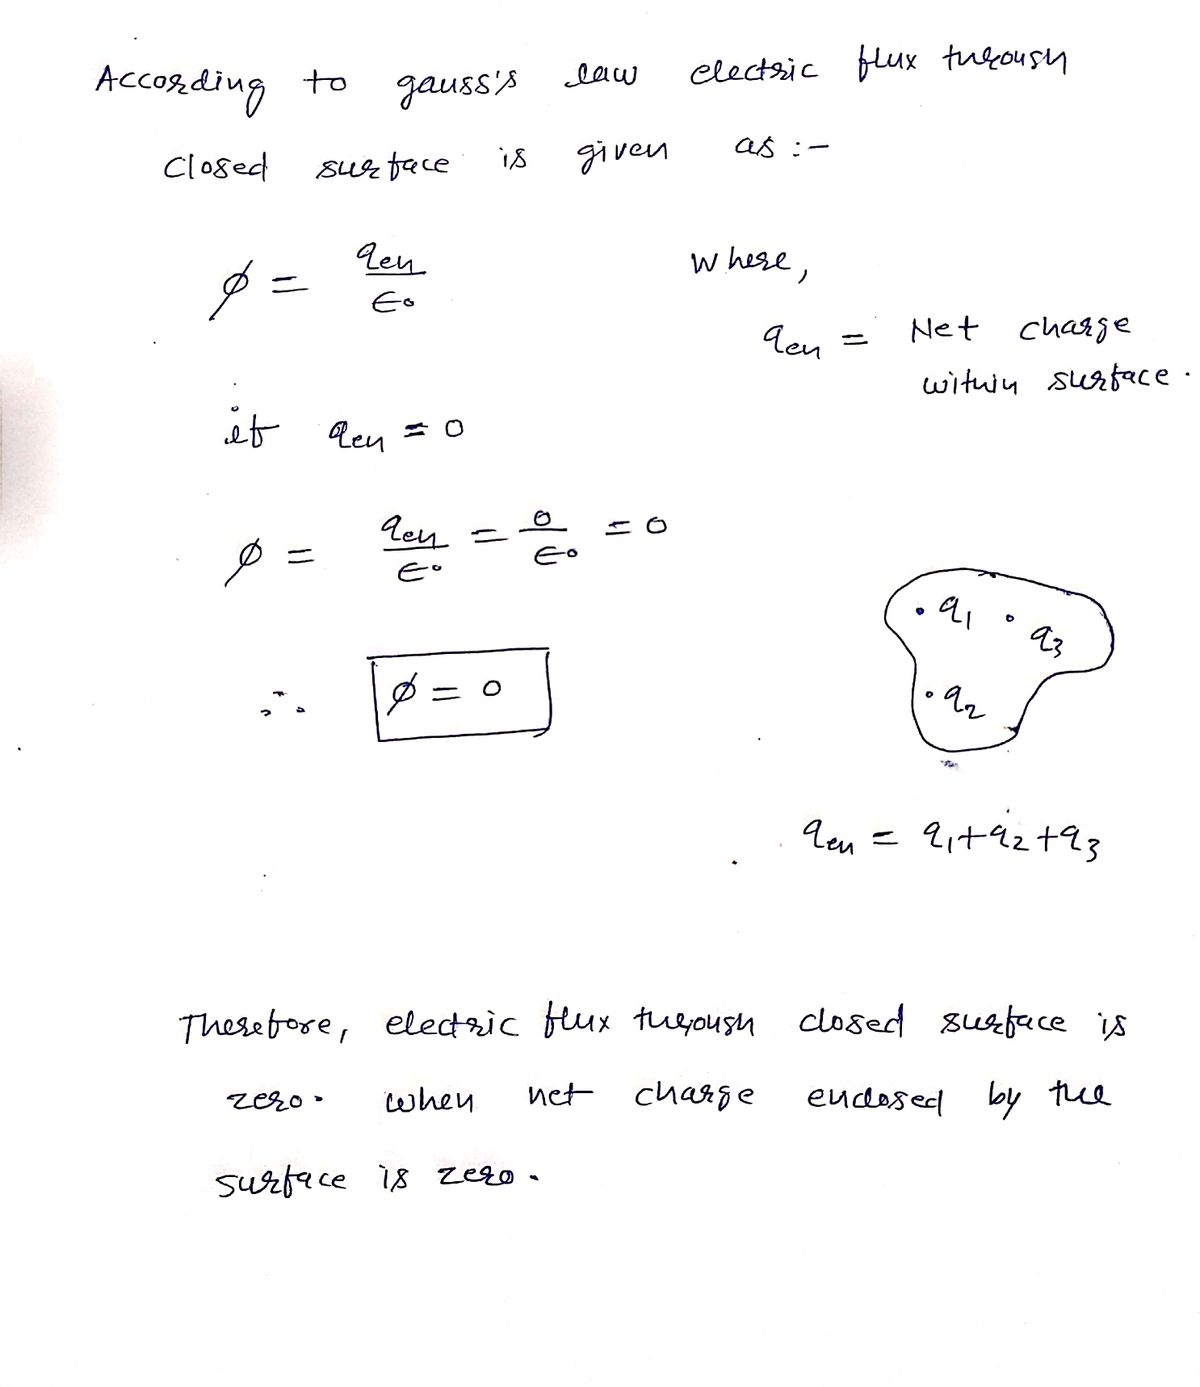 According to gauss's law electric flux through
closed surface is given as :-
φ = qen/ϵ₀
where,
qen = Net charge
within surface.
if qen = 0
φ = qen/ϵ₀ = 0/ϵ₀ = 0
∴ φ = 0
q₁
q₃
q₂
qen = q₁+q₂+q₃
Therefore, electric flux through closed surface is
zero. when net charge enclosed by the
surface is zero.